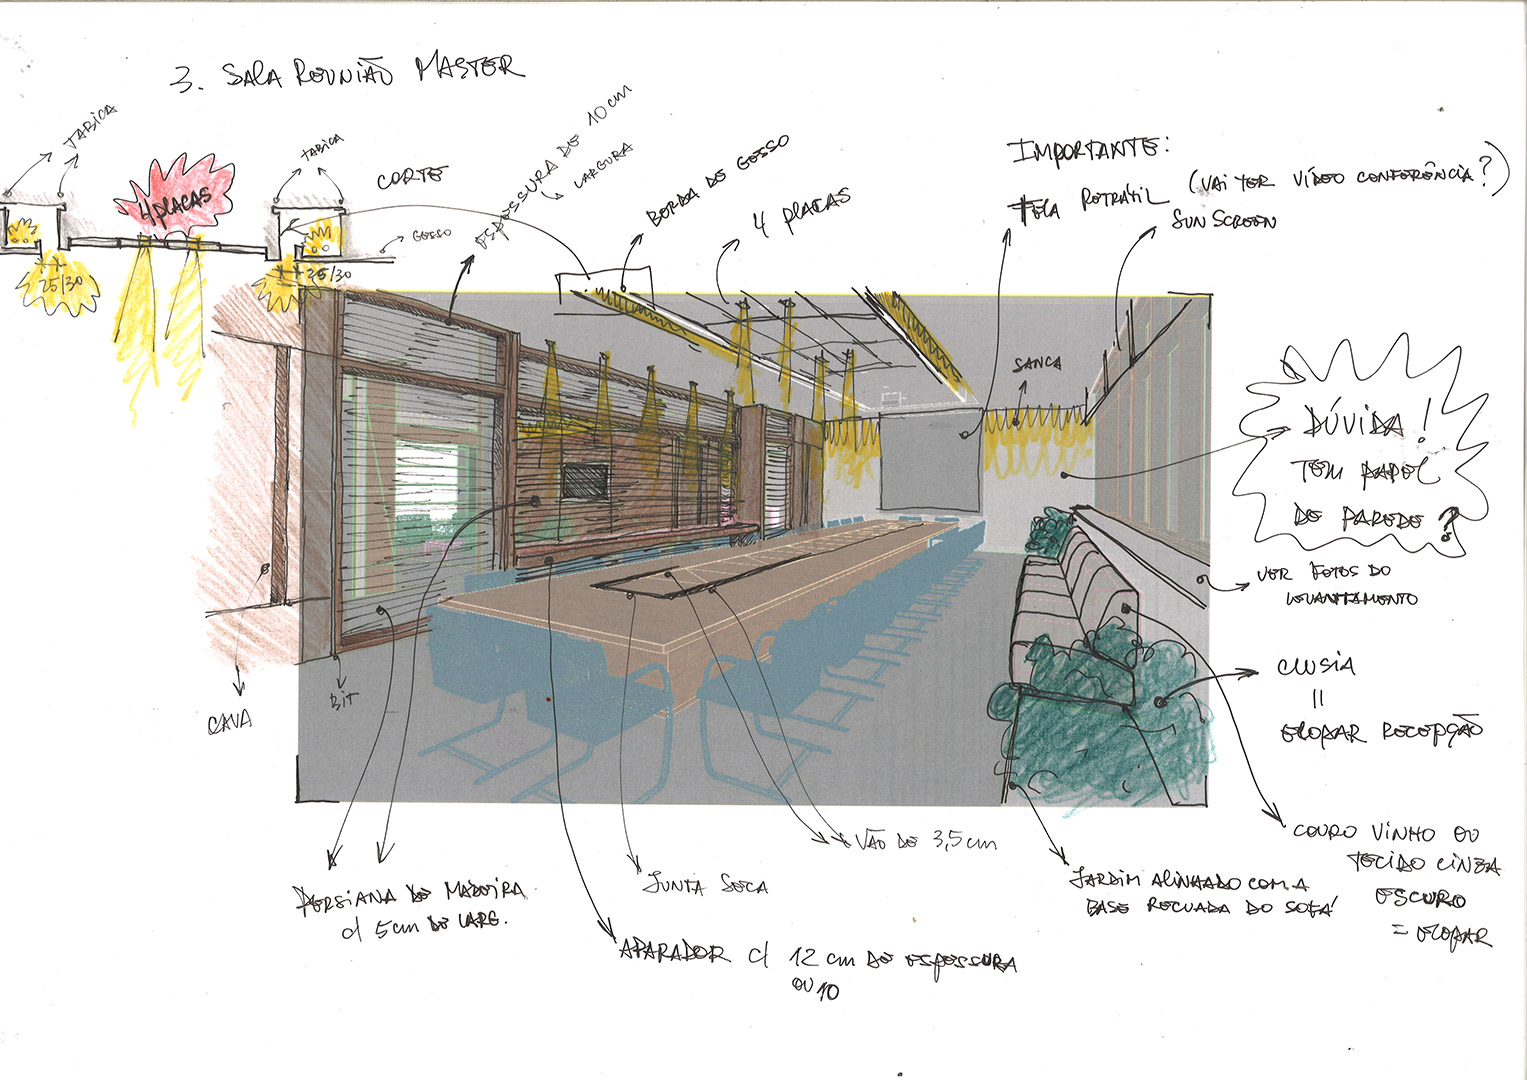 3. SALA REUNIÃO MASTER
TABICA
TABICA
4 PLACAS
CORTE
GESSO
25/30
25/30
ESPESSURA DE 10 cm
LARGURA
BORDA DE GESSO
4 PLACAS
IMPORTANTE:
TELA RETRÁTIL (VAI TER VÍDEO CONFERÊNCIA?)
SUN SCREEN
SANCA
DÚVIDA!
TEM PAPEL
DE PAREDE ?
VER FOTOS DO
LEVANTAMENTO
CLUSIA
=
ECOPAR RECEPÇÃO
CAVA
BIT
PERSIANA DE MADEIRA
c/ 5 cm DE LARG.
JUNTA SECA
VÃO DE 3,5 cm
APARADOR c/ 12 cm DE ESPESSURA
OU 10
JARDIM ALINHADO COM A
BASE RECUADA DO SOFÁ
COURO VINHO OU
TECIDO CINZA
ESCURO
= ECOPAR